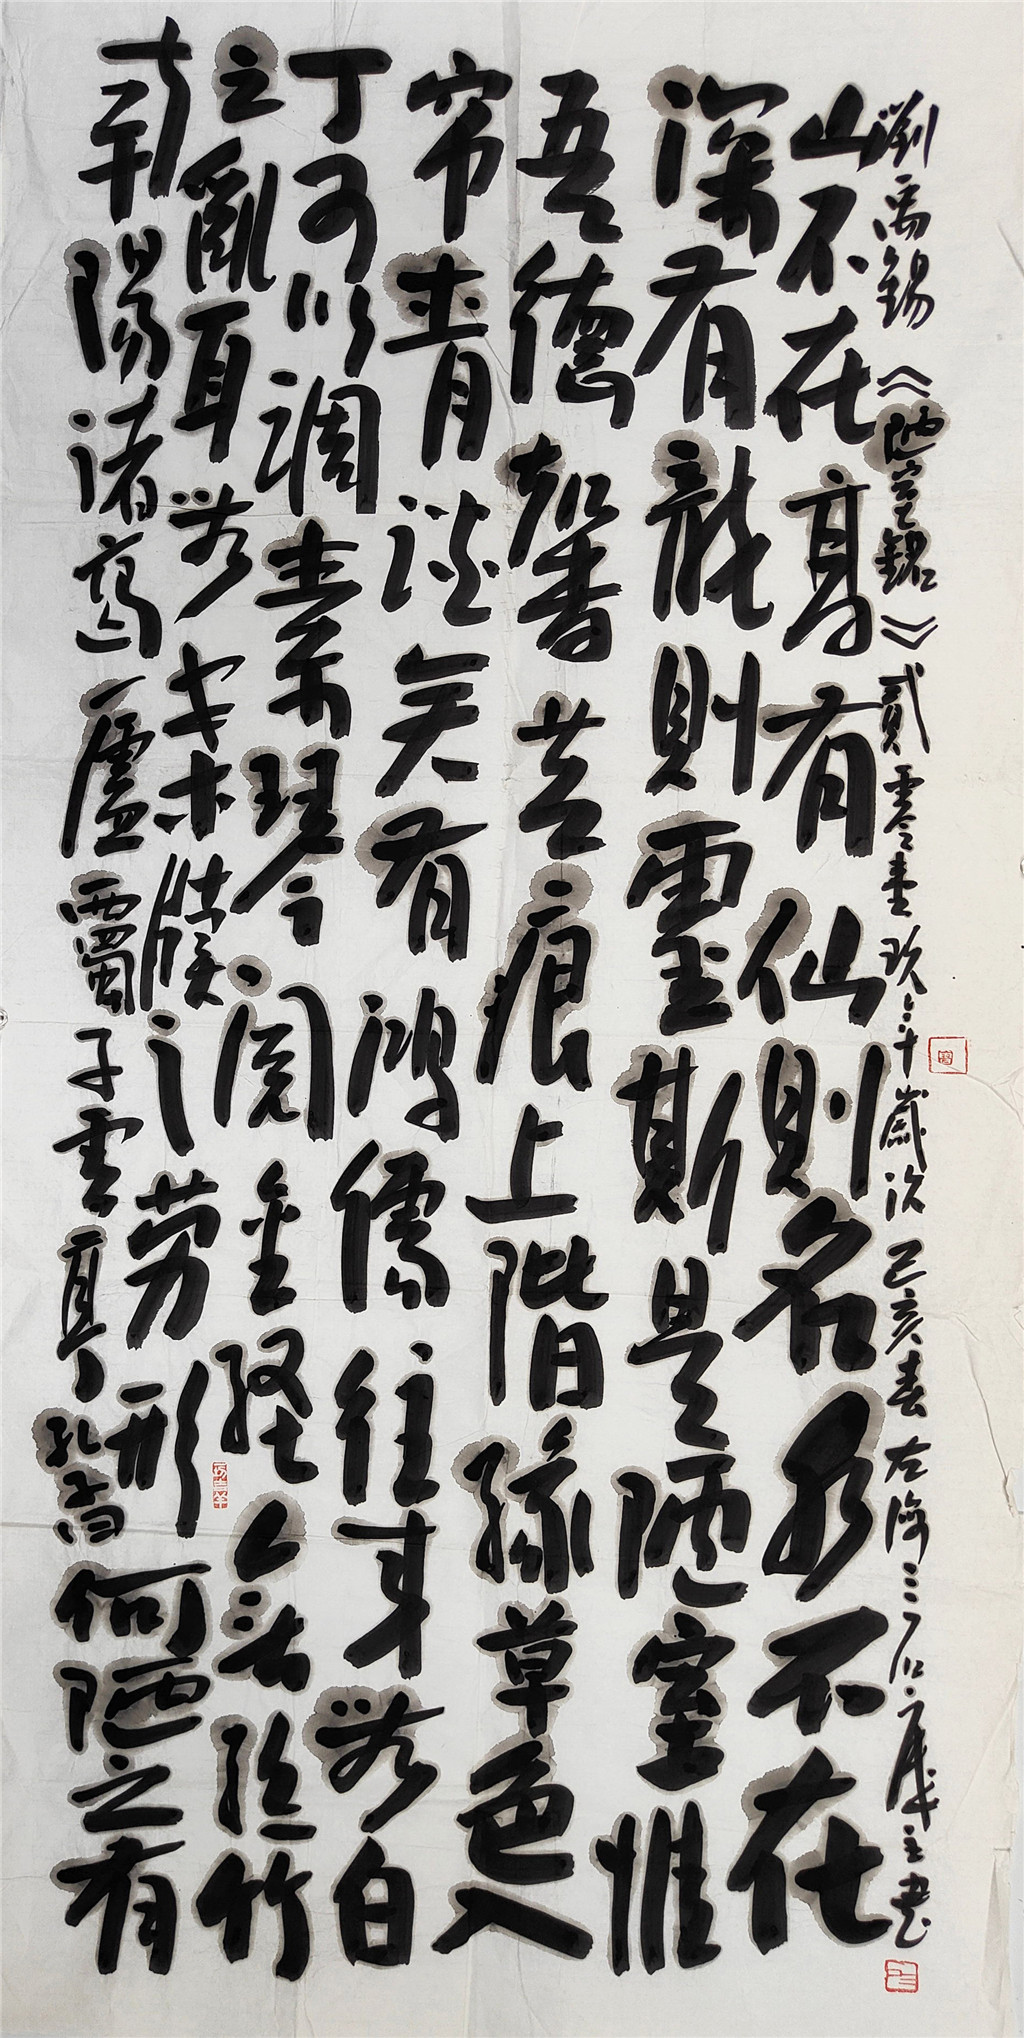 劉禹錫《陋室銘》貳零壹玖年歲次己亥春左海三
山不在高有仙則名水不在
深有龍則靈斯是陋室惟
吾德馨苔痕上階綠草色入
帘青談笑有鴻儒往來無白
丁可以調素琴閱金經無絲竹
之亂耳無案牘之勞形
南陽諸葛廬西蜀子雲亭孔子曰何陋之有